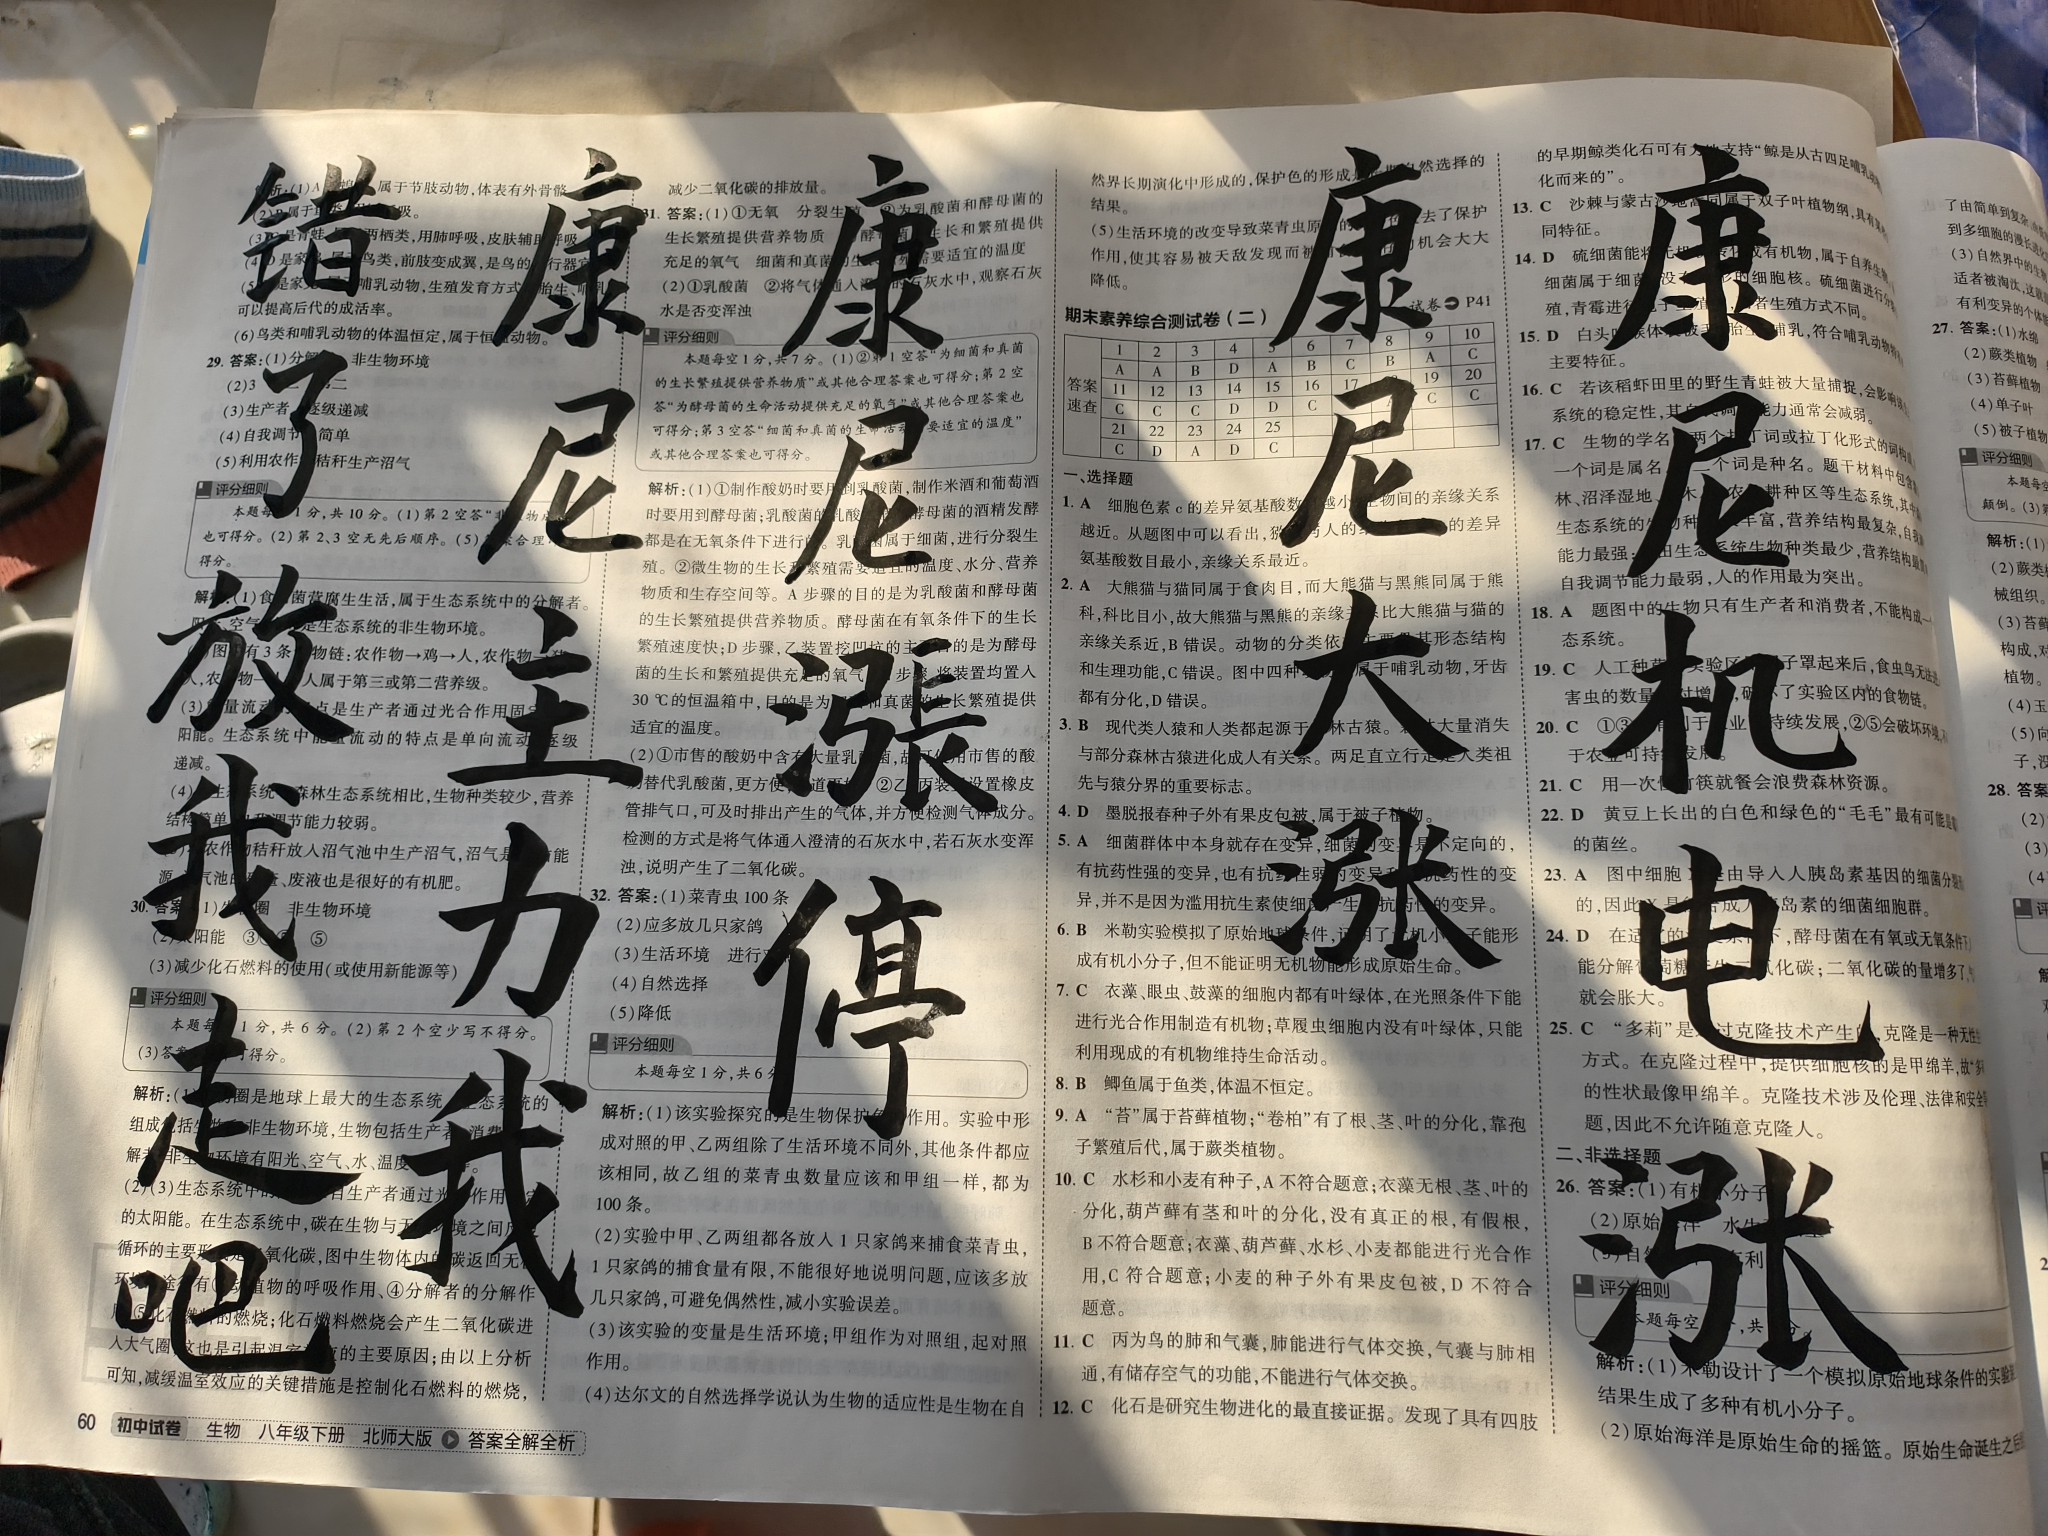 康尼机电涨
康尼大涨
康尼漲停
康尼主力我
错了放我走吧
属于节肢动物,体表有外骨骼
两栖类,用肺呼吸,皮肤辅助呼吸
鸟类,前肢变成翼,是鸟的
哺乳动物,生殖发育方式
可以提高后代的成活率。
(6)鸟类和哺乳动物的体温恒定,属于恒 动物。
29. 答案:(1)分解 非生物环境
(2)3
(3)生产者 逐级递减
(4)自我调节 简单
(5)利用农作物秸秆生产沼气
评分细则
本题每 1分,共10分。(1)第2空答“非
也可得分。(2)第2、3空无先后顺序。(5) 合理
得分。
解析:(1)食 菌营腐生生活,属于生态系统中的分解者。
是生态系统的非生物环境。
有3条 物链:农作物→鸡→人,农作物
人属于第三或第二营养级。
(3) 量流动 点是生产者通过光合作用固
阳能。生态系统中能量流动的特点是单向流动 逐级
递减。
(4) 生态系统 森林生态系统相比,生物种类较少,营养
结构简单 调节能力较弱。
农作物秸秆放入沼气池中生产沼气,沼气是 能
源 气池 、废液也是很好的有机肥。
30. 答案 (1)生 圈 非生物环境
(2)太阳能 ⑤
(3)减少化石燃料的使用(或使用新能源等)
评分细则
本题每 1分,共6分。(2)第2个空少写不得分。
(3)答 可得分。
解析:(1) 圈是地球上最大的生态系统 生态系统的
组成包括 非生物环境,生物包括生产者 消费
解者 非生物环境有阳光、空气、水、温度
(2)(3)生态系统中的 自生产者通过光 作用
的太阳能。在生态系统中,碳在生物与无 环境之间
循环的主要形 氧化碳,图中生物体内 碳返回无
环境 途径有 植物的呼吸作用、④分解者的分解作
用 ⑤化石燃料的燃烧;化石燃料燃烧会产生二氧化碳进
入大气圈 这也是引起温室 的主要原因;由以上分析
可知,减缓温室效应的关键措施是控制化石燃料的燃烧,
减少二氧化碳的排放量。
31. 答案:(1)①无氧 分裂生殖 ②为乳酸菌和酵母菌的
生长繁殖提供营养物质 酵母 生长和繁殖提供
充足的氧气 细菌和真菌的生 需要适宜的温度
(2)①乳酸菌 ②将气体通入澄 的石灰水中,观察石灰
水是否变浑浊
评分细则
本题每空1分,共7分。(1)②第1空答“为细菌和真菌
的生长繁殖提供营养物质”或其他合理答案也可得分;第2空
答“为酵母菌的生命活动提供充足的氧气”或其他合理答案也
可得分;第3空答“细菌和真菌的生命活动 要适宜的温度”
或其他合理答案也可得分。
解析:(1)①制作酸奶时要用到乳酸菌,制作米酒和葡萄酒
时要用到酵母菌;乳酸菌的乳酸 酵母菌的酒精发酵
都是在无氧条件下进行的。乳 菌属于细菌,进行分裂生
殖。②微生物的生长和繁殖需要适宜的温度、水分、营养
物质和生存空间等。A步骤的目的是为乳酸菌和酵母菌
的生长繁殖提供营养物质。酵母菌在有氧条件下的生长
繁殖速度快;D步骤,乙装置挖凹坑的主要目的是为酵母
菌的生长和繁殖提供充足的氧气 步骤 将装置均置入
30 ℃的恒温箱中,目的是为 和真菌的生长繁殖提供
适宜的温度。
(2)①市售的酸奶中含有大量乳酸菌,故可使用市售的酸
奶替代乳酸菌,更方便 ②乙、丙装 设置橡皮
管排气口,可及时排出产生的气体,并方便检测气体成分。
检测的方式是将气体通入澄清的石灰水中,若石灰水变浑
浊,说明产生了二氧化碳。
32. 答案:(1)菜青虫100条
(2)应多放几只家鸽
(3)生活环境 进行
(4)自然选择
(5)降低
评分细则
本题每空1分,共6分
解析:(1)该实验探究的是生物保护色 作用。实验中形
成对照的甲、乙两组除了生活环境不同外,其他条件都应
该相同,故乙组的菜青虫数量应该和甲组一样,都为
100条。
(2)实验中甲、乙两组都各放入1只家鸽来捕食菜青虫,
1只家鸽的捕食量有限,不能很好地说明问题,应该多放
几只家鸽,可避免偶然性,减小实验误差。
(3)该实验的变量是生活环境;甲组作为对照组,起对照
作用。
(4)达尔文的自然选择学说认为生物的适应性是生物在自
然界长期演化中形成的,保护色的形成是 自然选择的
结果。
(5)生活环境的改变导致菜青虫原 去了保护
作用,使其容易被天敌发现而被 机会大大
降低。
期末素养综合测试卷(二) 试卷 P41
答案速查
1 2 3 4 5 6 7 8 9 10
A A B D A B C B A C
11 12 13 14 15 16 17 19 20
C C C D D C A C C
21 22 23 24 25
C D A D C
一、选择题
1. A 细胞色素c的差异氨基酸数 越小 生物间的亲缘关系
越近。从题图中可以看出,猕 与人的 的差异
氨基酸数目最小,亲缘关系最近。
2. A 大熊猫与猫同属于食肉目,而大熊猫与黑熊同属于熊
科,科比目小,故大熊猫与黑熊的亲缘关系比大熊猫与猫的
亲缘关系近,B错误。动物的分类依 主要是其形态结构
和生理功能,C错误。图中四种 属于哺乳动物,牙齿
都有分化,D错误。
3. B 现代类人猿和人类都起源于森林古猿。 大量消失
与部分森林古猿进化成人有关。两足直立行走是人类祖
先与猿分界的重要标志。
4. D 墨脱报春种子外有果皮包被,属于被子植物。
5. A 细菌群体中本身就存在变异,细菌的变异是不定向的,
有抗药性强的变异,也有抗药性弱的变异 抗药性的变
异,并不是因为滥用抗生素使细菌产生 抗药性的变异。
6. B 米勒实验模拟了原始地球条件,证明了 机小 子能形
成有机小分子,但不能证明无机物能形成原始生命。
7. C 衣藻、眼虫、鼓藻的细胞内都有叶绿体,在光照条件下能
进行光合作用制造有机物;草履虫细胞内没有叶绿体,只能
利用现成的有机物维持生命活动。
8. B 鲫鱼属于鱼类,体温不恒定。
9. A “苔”属于苔藓植物;“卷柏”有了根、茎、叶的分化,靠孢
子繁殖后代,属于蕨类植物。
10. C 水杉和小麦有种子,A不符合题意;衣藻无根、茎、叶的
分化,葫芦藓有茎和叶的分化,没有真正的根,有假根,
B不符合题意;衣藻、葫芦藓、水杉、小麦都能进行光合作
用,C符合题意;小麦的种子外有果皮包被,D不符合
题意。
11. C 丙为鸟的肺和气囊,肺能进行气体交换,气囊与肺相
通,有储存空气的功能,不能进行气体交换。
12. C 化石是研究生物进化的最直接证据。发现了具有四肢
的早期鲸类化石可有力地支持“鲸是从古四足哺乳动物
化而来的”。
13. C 沙棘与蒙古沙地 同属于双子叶植物纲,具有
同特征。
14. D 硫细菌能将无机 成有机物,属于自养生
细菌属于细菌 没有 形的细胞核。硫细菌进行分裂
殖,青霉进行 生殖 者生殖方式不同。
15. D 白头叶 体 被毛 胎生 哺乳,符合哺乳动物
主要特征。
16. C 若该稻虾田里的野生青蛙被大量捕捉,会影响
系统的稳定性,其自我调 能力通常会减弱。
17. C 生物的学名 两个拉丁词或拉丁化形式的词构成
一个词是属名 二个词是种名。题干材料中包含
林、沼泽湿地、 木 农 耕种区等生态系统,其中
生态系统的生物种 丰富,营养结构最复杂,自我
能力最强; 田生态系统生物种类最少,营养结构最
自我调节能力最弱,人的作用最为突出。
18. A 题图中的生物只有生产者和消费者,不能构成一
态系统。
19. C 人工种草 实验区 子罩起来后,食虫鸟无法进
害虫的数量 对增 破坏了实验区内的食物链。
20. C ①③ 利于 业 持续发展,②⑤会破坏环境
于农业可持续发展。
21. C 用一次性 筷就餐会浪费森林资源。
22. D 黄豆上长出的白色和绿色的“毛毛”最有可能是
的菌丝。
23. A 图中细胞 是由导入人胰岛素基因的细菌分裂
的,因此 是 合成人 岛素的细菌细胞群。
24. D 在适宜的 下,酵母菌在有氧或无氧条件下
能分解葡萄糖产生二氧化碳;二氧化碳的量增多了,
就会胀大。
25. C “多莉”是 过克隆技术产生的,克隆是一种无性
方式。在克隆过程中,提供细胞核的是甲绵羊,故“多
的性状最像甲绵羊。克隆技术涉及伦理、法律和安全
题,因此不允许随意克隆人。
二、非选择题
26. 答案:(1)有机小分子
(2)原始海洋 水生
(3)自
评分细则
本题每空 分,共 分。
解析:(1)米勒设计了一个模拟原始地球条件的实验
结果生成了多种有机小分子。
(2)原始海洋是原始生命的摇篮。原始生命诞生之后
了由简单到复杂
到多细胞的漫长进化
(3)自然界中的生物
适者被淘汰,这就
有利变异的个体
27. 答案:(1)水绵
(2)蕨类植物
(3)苔藓植物
(4)单子叶
(5)被子植物
评分细则
本题每空
颠倒。(3)
解析:(1)
(2)蕨类
械组织。
(3)苔藓
构成,对
植物。
(4)玉
(5)向
子,没
28. 答案
60 初中试卷 生物 八年级下册 北师大版 答案全解全析